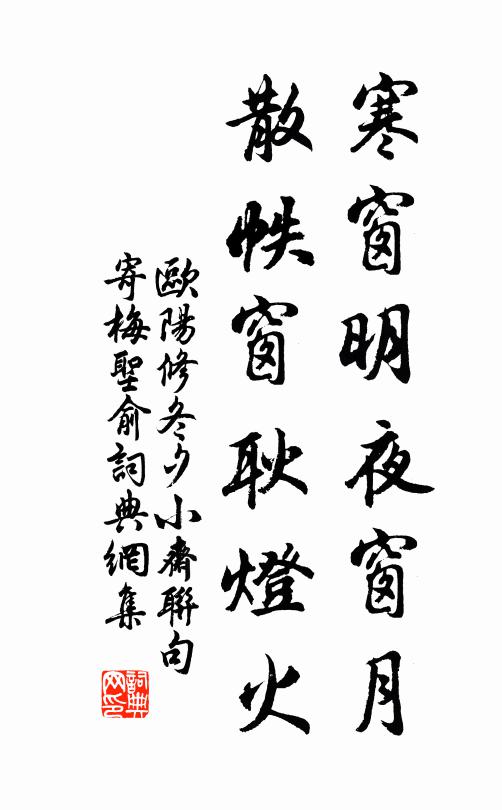 寒窗明夜窗月
散帙窗耿燈火
歐陽修冬夕小齋聯句
寄梅聖俞詞典網集
詞典網印